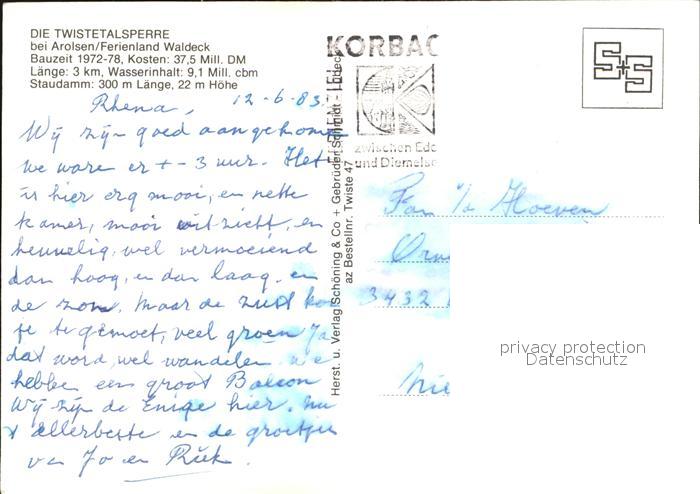 DIE TWISTETALSPERRE
bei Arolsen/Ferienland Waldeck
Bauzeit 1972-78, Kosten: 37,5 Mill. DM
Länge: 3 km, Wasserinhalt: 9,1 Mill. cbm
Staudamm: 300 m Länge, 22 m Höhe
Rhena, 12-6-83.
Wij zijn goed aangekome
we ware er + - 3 uur. Het
is hier erg mooi, en nette
kamer, mooi uitzicht, en
heuvelig, wel vermoeiend
dan hoog, en dan laag. en
de zon. Maar de zust
je tegemoet, veel groen Ja
dat word wel wandelen we
hebbe een groot Balcon
Wij zijn de Enige hier. nu
allerbeste en de groetjes
van Jo en Riek.
Herst. u. Verlag Schöning & Co + Gebrüder Schmidt - Lübeck
az Bestellnr. Twiste 47
KORBAC
zwischen Ede
und Diemelse
S+S
Fam v/d Hoeven
3432
privacy protection
Datenschutz